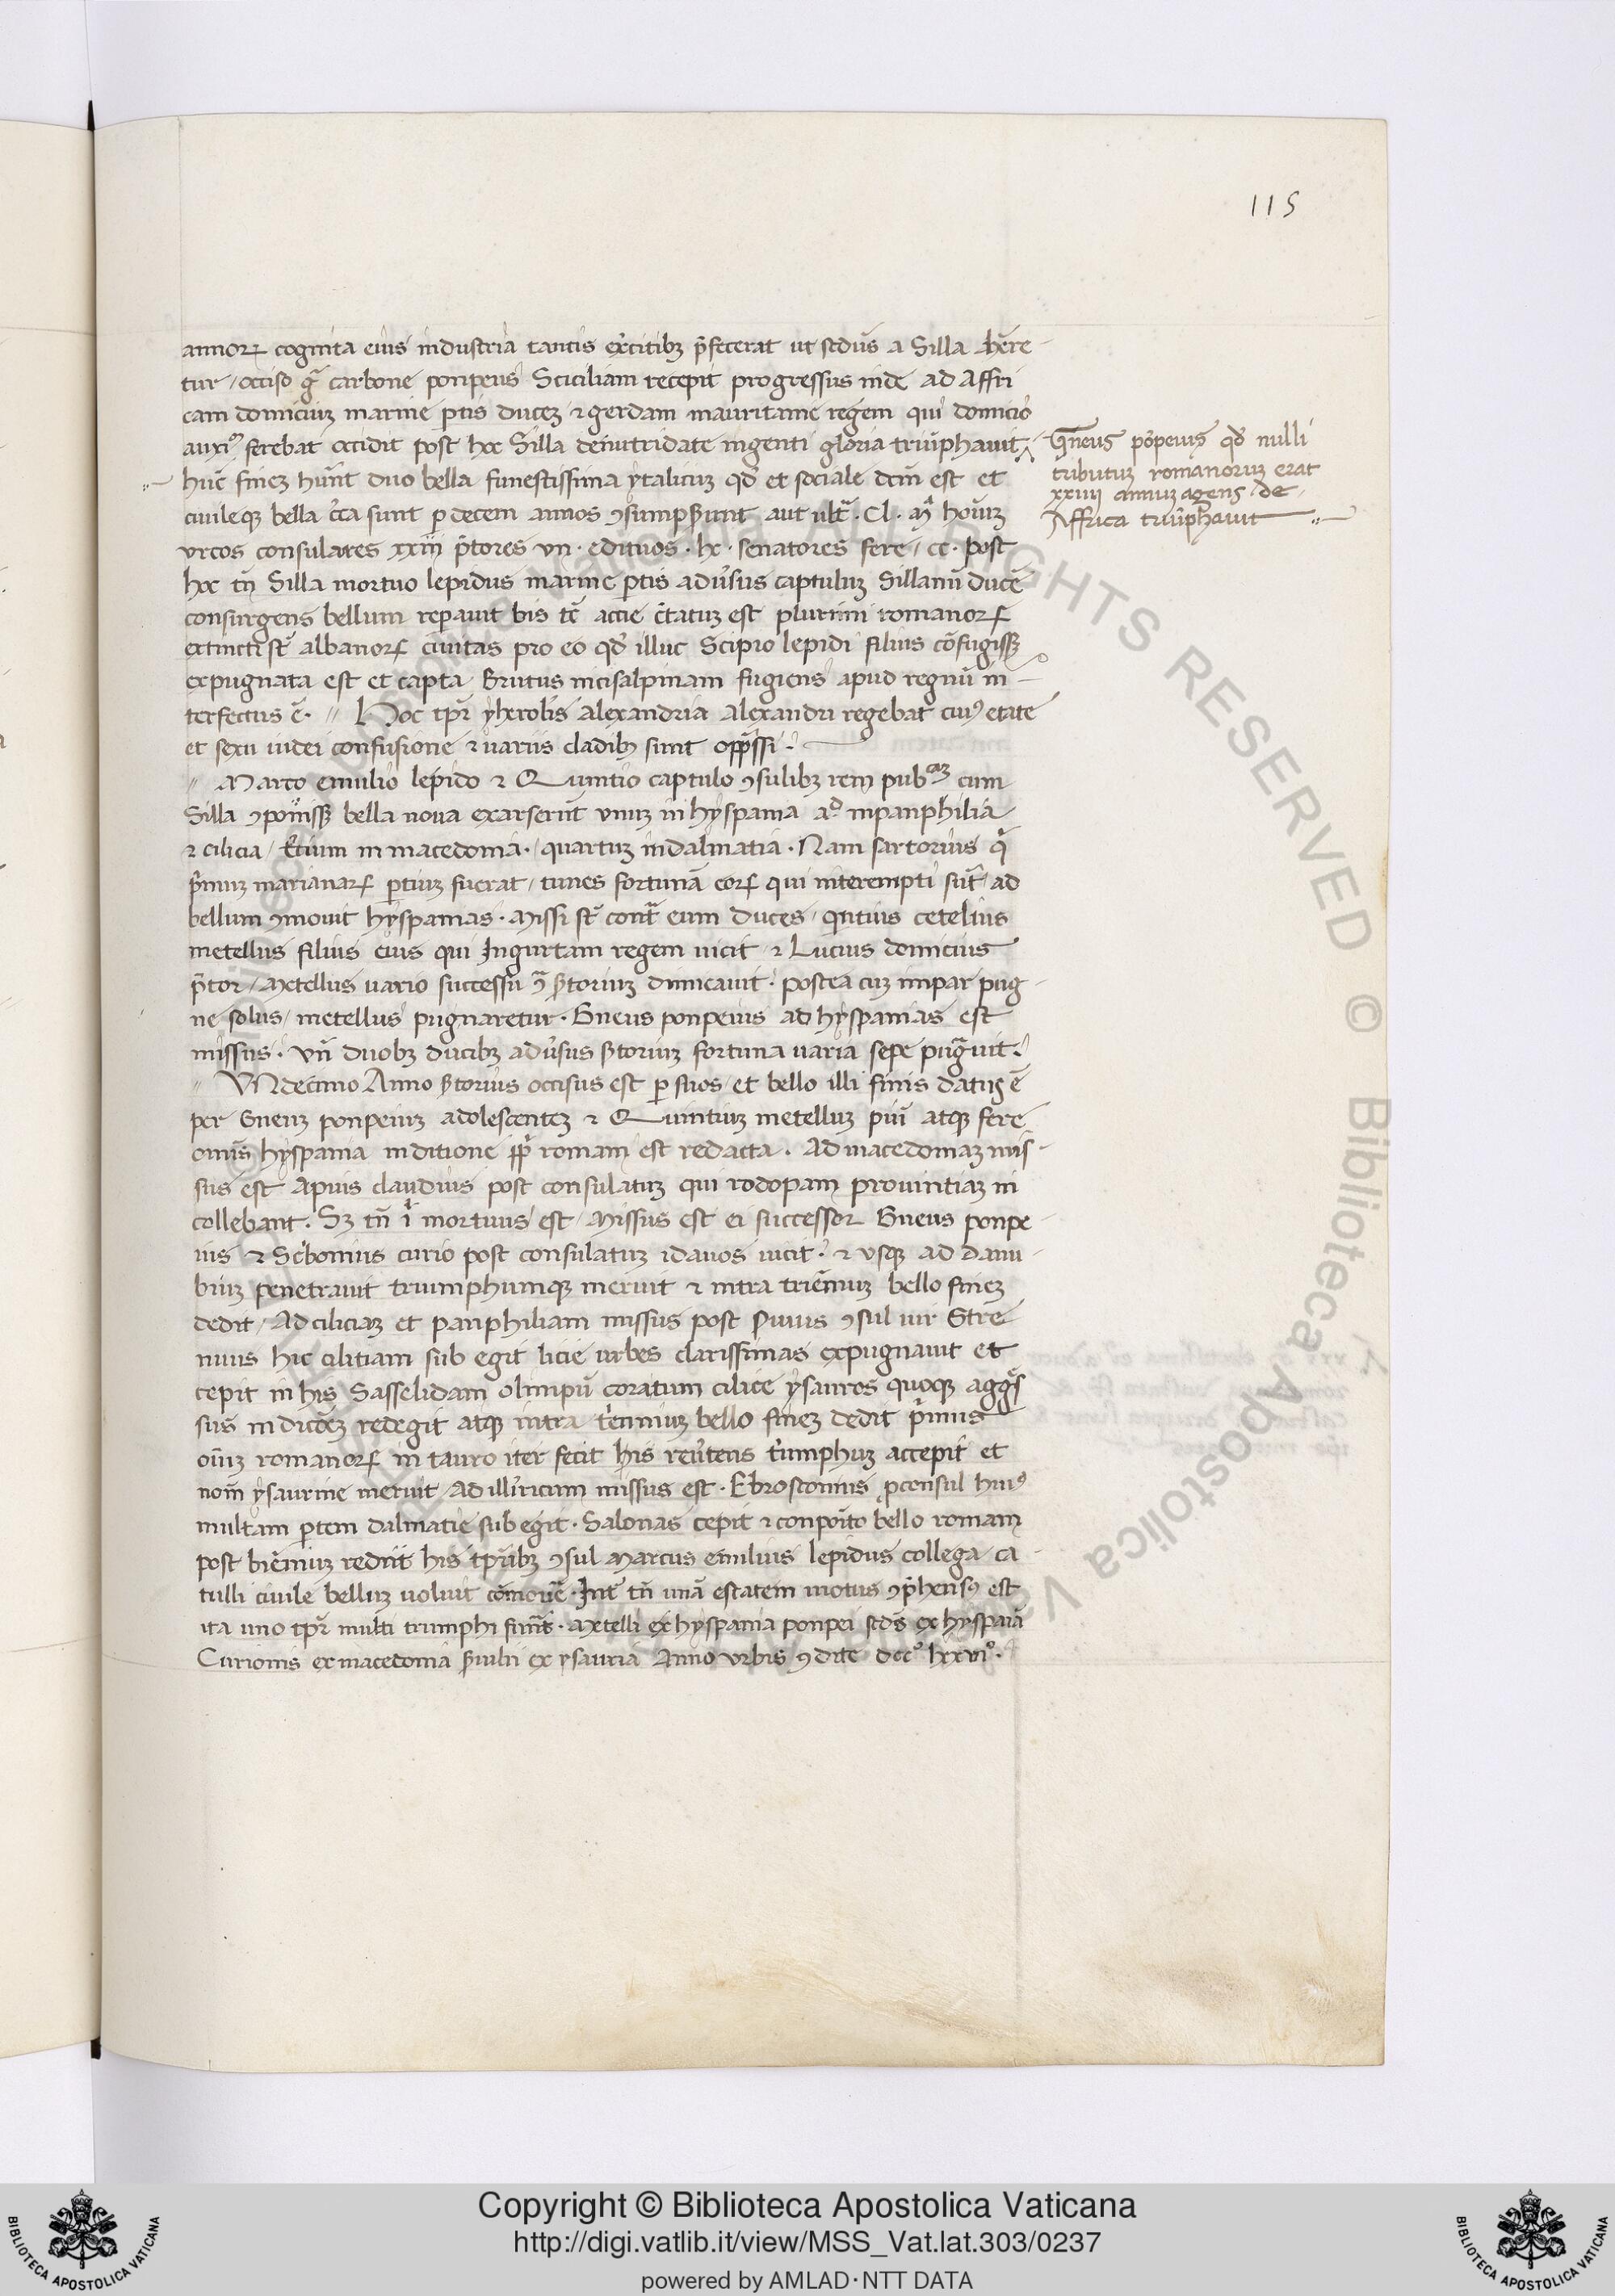 115
annoꝝ cognita eiuˢ industria tantis exc̓itibꝫ p̄fecerat ut scd̄us a Silla h̄ere
tur / occiso gͣ carbone ponpeus Sciciliam recepit progressus inde ad Affri
cam domiciuꝫ marine ptis ducez ⁊ gerdam mauritanie regem qui domicio
auxiº ferebat occidit post hoc Silla demitridate ingenti gloria triūphauit
hūc finez hūnt duo bella funestissima ytalicuꝫ qd̓ et sociale dcm̄ est et
ciuileqꝫ bella c̄cta sunt p decem annos ꝯsumpserunt aut ultͣ . Cl . mͣ houīꝫ
uros consulares xxiiij p̄tores vn . edituos . lx . senatores fere / cc . post
hoc tn̄ Silla mortuo lepidus marine ptis adu̓sus captulum Sillanū ducē
consurgens bellum repauit bis tē̄ acie c̄tatuꝫ est plurimi romanoꝝ
extincti st̄ albanoꝝ ciuitas pro eo qd̓ illuc Scipio lepidi filius cōfugissꝫ
expugnata est et capta Brutus incisalpinam fugiens apud regnū in
terfectus ē . // Hoc tpr̄ yherolis alexandria alexandri regebat cuiꝰ etate
et sexu iudei confusione ⁊ uariis cladibꝫ sunt opp̄ssi .
// Marco emilio lepido ⁊ Quintio captulo ꝯsulibꝫ rem pubᶜᵃᵐ cum
Silla ꝯponissꝫ bella noua exarserūt vnuꝫ in hyspania aº inpanphilia
⁊ cilicia / t̓cium in macedonia . quartuꝫ indalmatia . Nam sartorius qͣ
p̄muꝫ marianaꝝ ptiuꝫ fuerat / times fortunā eoꝝ qui interempti sūt ad
bellum ꝯmouit hyspanias . Missi st̄ contͣ eum duces / qntius cetelius
metellus filius eius qui Iugurtam regem uicit ⁊ Lucius domicius
p̄tor / Metellus uario successu ꝯͣ s̓toriuꝫ dimicauit . postea cuꝫ impar pug
ne solus / metellus pugnaretur . Gneus ponpeius ad hyspanias est
missus . vn̄ duobꝫ ducibꝫ adu̓sus s̓toriuꝫ fortuna uaria sepe pugͣuit .
// Vndecimo Anno s̓torius occisus est p suos / et bello illi finis datus ē
per Gneuꝫ ponpeiuꝫ adolescentez ⁊ Quintiuꝫ metelluꝫ piū atqꝫ fere
omīs hyspania inditione ppͣ romani est redacta . Ad macedoniaꝫ mis
sus est Apius claudius post consulatuꝫ qui rodopam prouintiaꝫ in
collebant . Sꝫ tn̄ iͣ mortuus est / Missus est ei successor Gneus ponpe
ius ⁊ Sc̓bonius curio post consulatuꝫ idauos uicit . ⁊ vsqꝫ ad danu
biuꝫ penetrauit triumphumqꝫ meruit ⁊ intra triēniuꝫ bello finez
dedit / Ad ciliciaꝫ et panphiliam missus post s̓uius ꝯsul uir Stre
nuus hic cilitiam sub egit licie urbes clarissimas expugnauit et
cepit in his Sasselidam olimpū coratum cilice ysauros quoqꝫ aggͤs
sus in diciōez redegit atqꝫ intra tͥenniuꝫ bello finez dedit p̄imus
oīuꝫ romanoꝝ in tauro iter fecit his reu̓tens tͥumphuꝫ accepit et
nom̄ ysaurine meruit / Ad illiricum missus est . Ebrosconius ꝓconsul huiꝰ
multam ptem dalmatie sub egit . Salonas cepit ⁊ conpoīto bello romam
post biēniuꝫ rediit his tpr̄ibꝫ ꝯsul Marcus emilius lepidus collega ca
tulli ciuile belluꝫ uoluit cōmouē . Int̓ tn̄ unā estatem motus ꝯp̄hensꝰ est
ita uno tpr̄ multi triumphi fuerūt . Metelli ex hyspania ponpei scd̄s ex hyspaiā
Curionis ex macedonia s̓uilii ex ysauria Anno vrbis ꝯdite dccº lxxviº .
Gneus pōpeius qd̓ nulli
tributuꝫ romanoruꝫ erat
xxiiij annuꝫ agens de
Affrica triūphauit
Copyright © Biblioteca Apostolica Vaticana
http://digi.vatlib.it/view/MSS_Vat.lat.303/0237
powered by AMLAD·NTT DATA
BIBLIOTECA APOSTOLICA VATICANA
BIBLIOTECA APOSTOLICA VATICANA